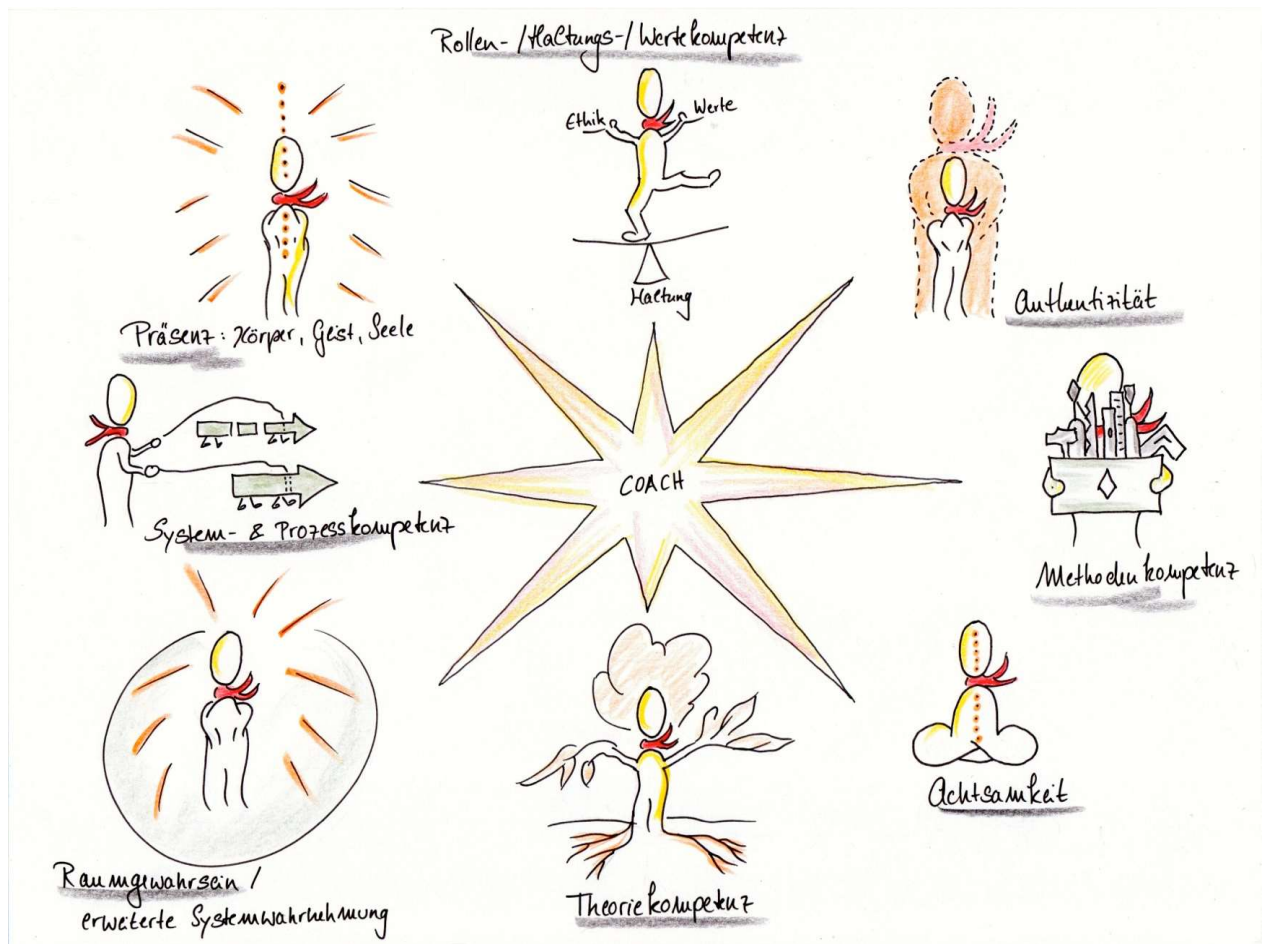 Rollen-/Haltungs-/Wertekompetenz
Ethik
Werte
Haltung
Präsenz: Körper, Geist, Seele
Authentizität
System- & Prozesskompetenz
COACH
Methodenkompetenz
Achtsamkeit
Raumgewahrsein /
erweiterte Systemwahrnehmung
Theoriekompetenz